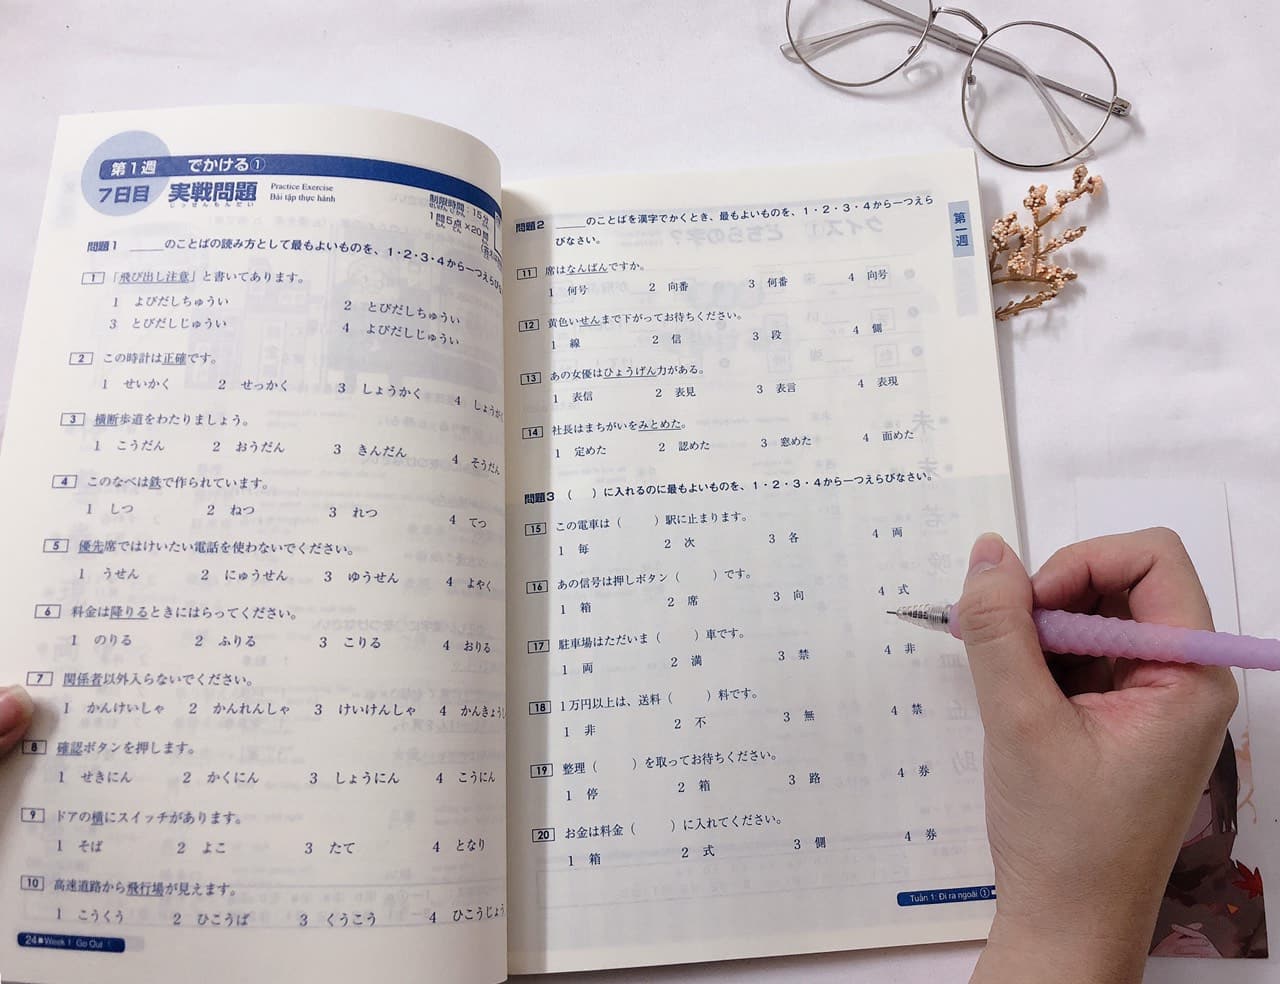 第1週 でかける①
7日目 実戦問題
じっせんもんだい
Practice Exercise
Bài tập thực hành
制限時間:15分
1問5点×20問
問題1 _____のことばの読み方として最もよいものを、1・2・3・4から一つえらびな
1 「飛び出し注意」と書いてあります。
1 よびだしちゅうい 2 とびだしちゅうい
3 とびだしじゅうい 4 よびだしじゅうい
2 この時計は正確です。
1 せいかく 2 せっかく 3 しょうかく 4 しょうか
3 横断歩道をわたりましょう。
1 こうだん 2 おうだん 3 きんだん 4 そうだん
4 このなべは鉄で作られています。
1 しつ 2 ねつ 3 れつ 4 てつ
5 優先席ではけいたい電話を使わないでください。
1 うせん 2 にゅうせん 3 ゆうせん 4 よやく
6 料金は降りるときにはらってください。
1 のりる 2 ふりる 3 こりる 4 おりる
7 関係者以外入らないでください。
1 かんけいしゃ 2 かんれんしゃ 3 けいけんしゃ 4 かんきょうし
8 確認ボタンを押します。
1 せきにん 2 かくにん 3 しょうにん 4 こうにん
9 ドアの横にスイッチがあります。
1 そば 2 よこ 3 たて 4 となり
10 高速道路から飛行場が見えます。
1 こうくう 2 ひこうば 3 くうこう 4 ひこうじょう
24 ■ Week 1 Go Out 1
問題2 _____のことばを漢字でかくとき、最もよいものを、1・2・3・4から一つえら
びなさい。
11 席はなんばんですか。
1 何号 2 向番 3 何番 4 向号
12 黄色いせんまで下がってお待ちください。
1 線 2 信 3 段 4 側
13 あの女優はひょうげん力がある。
1 表信 2 表見 3 表言 4 表現
14 社長はまちがいをみとめた。
1 定めた 2 認めた 3 窓めた 4 面めた
問題3 ( )に入れるのに最もよいものを、1・2・3・4から一つえらびなさい。
15 この電車は( )駅に止まります。
1 毎 2 次 3 各 4 両
16 あの信号は押しボタン( )です。
1 箱 2 席 3 向 4 式
17 駐車場はただいま( )車です。
1 両 2 満 3 禁 4 非
18 1万円以上は、送料( )料です。
1 非 2 不 3 無 4 禁
19 整理( )を取ってお待ちください。
1 停 2 箱 3 路 4 券
20 お金は料金( )に入れてください。
1 箱 2 式 3 側 4 券
Tuần 1: Đi ra ngoài ① ■
第一週